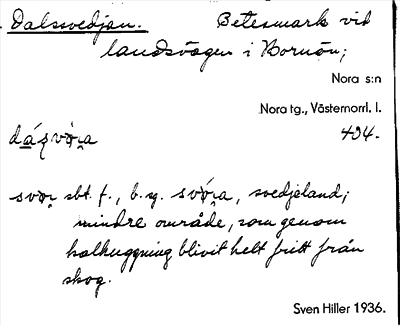 Dalssvedjan. Betesmark vid
landsvägen i Bornön;
Nora s:n
Nora tg., Västernorrl. l.
434.
svor sbt. f., b. sg. svóra, svedjeland;
mindre område, som genom
kalhuggning blivit helt fritt från
skog.
Sven Hiller 1936.